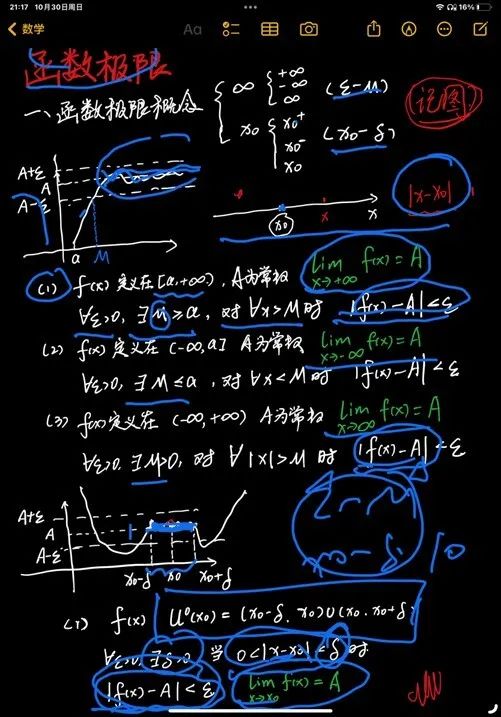 21:17 10月30日周日
16%
数学
Aa
函数极限
一、函数极限概念
∞ +∞ -∞ ∞ (ε-M)
x₀ x₀⁺ x₀⁻ x₀ (x₀-δ)
说图
A+ε
A
A-ε
a M
x₀ x x
|x-x₀|
(1) f(x)定义在[a,+∞), A为常数 lim x→+∞ f(x)=A
∀ε>0, ∃M>a, 对∀x>M时 |f(x)-A|<ε
(2) f(x)定义在(-∞,a] A为常数 lim x→-∞ f(x)=A
∀ε>0, ∃M≤a, 对∀x<M时 |f(x)-A|<ε
(3) f(x)定义在(-∞,+∞) A为常数 lim x→∞ f(x)=A
∀ε>0. ∃M>0, 对∀|x|>M时 |f(x)-A|<ε
A+ε
A
A-ε
x₀-δ x₀ x₀+δ
x₀-δ
f(x) U⁰(x₀)=(x₀-δ,x₀)∪(x₀,x₀+δ)
∀ε>0 ∃δ>0 当 0<|x-x₀|<δ时
|f(x)-A|<ε lim x→x₀ f(x)=A